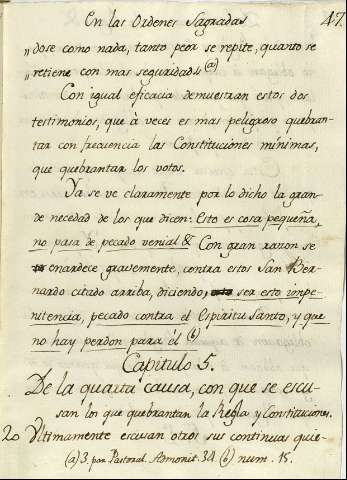 En las Ordenes Sagradas 47.
„dose como nada, tanto peor se repite, quanto se
„retiene con mas seguridad„ (a)
Con igual eficacia demuestran estos dos
testimonios, que à veces es mas peligroso quebran-
tar con frecuencia las Constituciones mínimas,
que quebrantar los votos.
Ya se ve claramente por lo dicho la gran-
de necedad de los que dicen: Esto es cosa pequeña,
no pasa de pecado venial & Con gran razon se
enardece gravemente, contra estos San Ber-
nardo citado arriba, diciendo, ser esto impe-
nitencia, pecado contra el Espiritu Santo, y que
no hay perdon para él (b)
Capitulo 5.
De la quarta causa, con que se escu-
san los que quebrantan la Regla y Constituciones.
20 Ultimamente escusan otros sus continuas quie-
(a) 3. par. Pastoral. Admonit. 34. (b) num. 15.